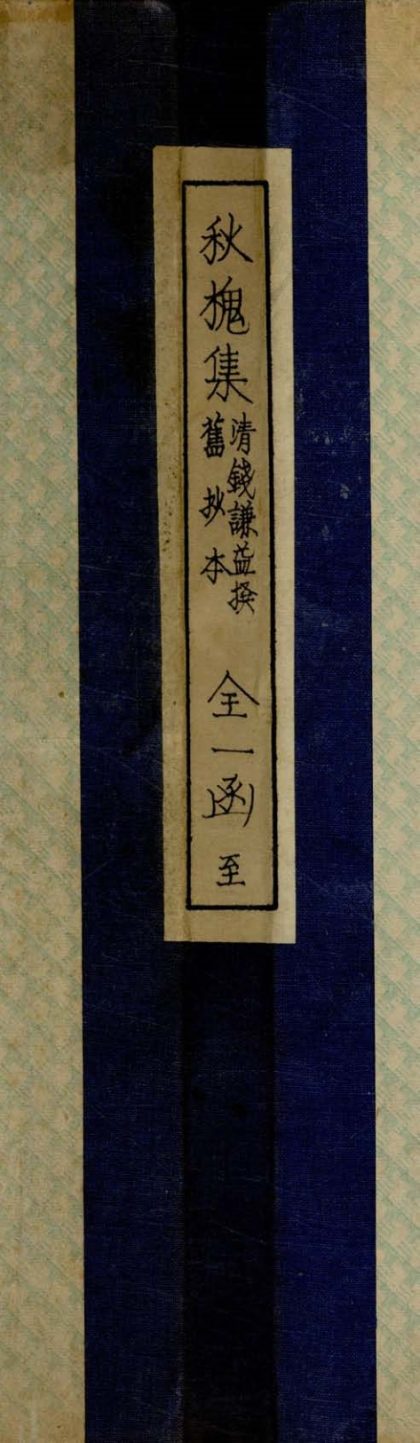 秋槐集
清錢謙益撰
舊抄本
全一函
至